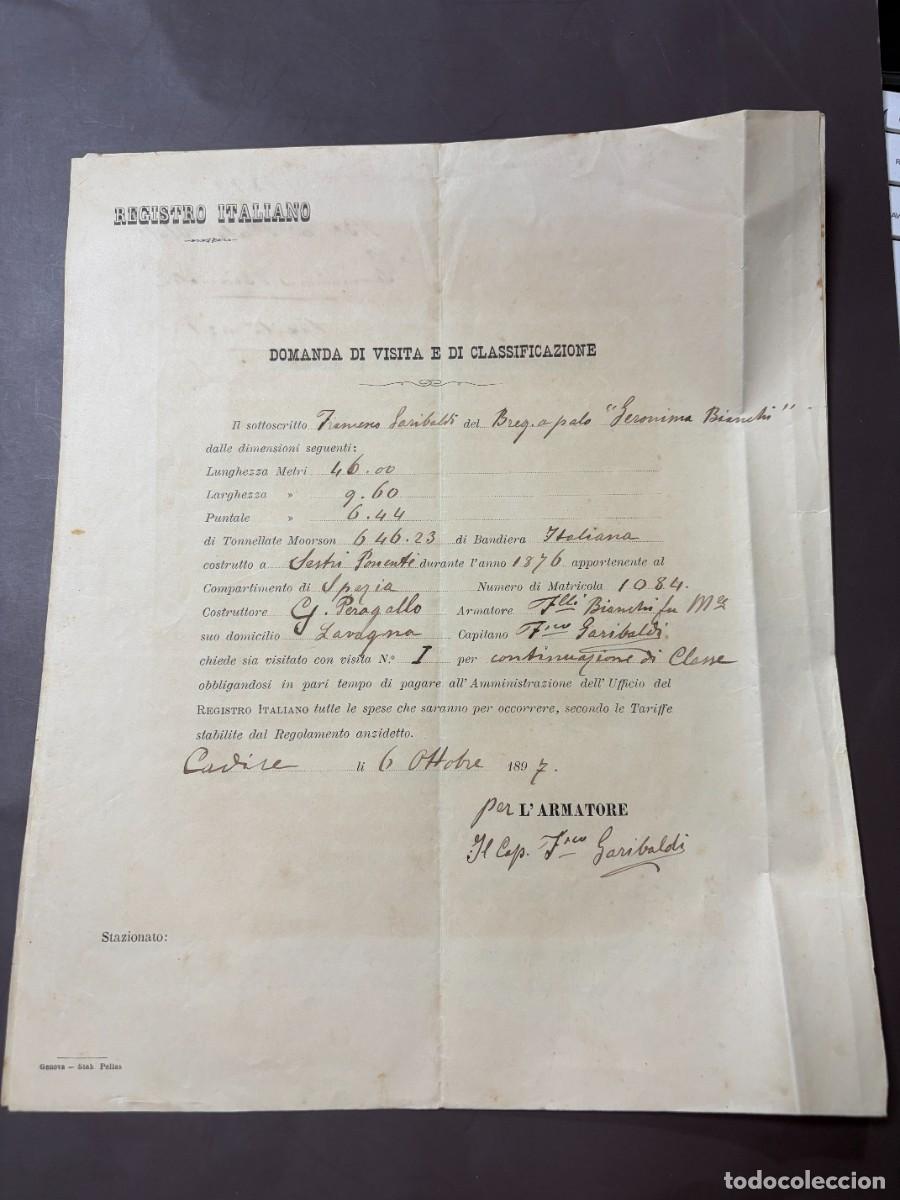 REGISTRO ITALIANO
DOMANDA DI VISITA E DI CLASSIFICAZIONE
Il sottoscritto Francesco Garibaldi del Brig. a palo "Geronima Bianchi"
dalle dimensioni seguenti:
Lunghezza Metri 46.00
Larghezza » 9.60
Puntale » 6.44
di Tonnellate Moorson 646.23 di Bandiera Italiana
costrutto a Sestri Ponente durante l'anno 1876 appartenente al
Compartimento di Spezia Numero di Matricola 1084.
Costruttore G. Peragallo Armatore Flli Bianchi fu
suo domicilio Lavagna Capitano Fsco Garibaldi.
chiede sia visitato con visita N.° I per continuazione di Classe
obbligandosi in pari tempo di pagare all'Amministrazione dell'Ufficio del
REGISTRO ITALIANO tutte le spese che saranno per occorrere, secondo le Tariffe
stabilite dal Regolamento anzidetto.
Cadice li 6 Ottobre 1897.
per L'ARMATORE
Il Cap. Fsco Garibaldi
Stazionato:
Genova — Stab. Pellas
todocoleccion